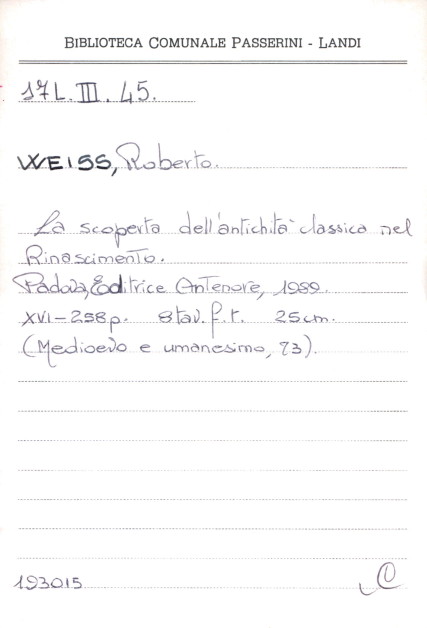 BIBLIOTECA COMUNALE PASSERINI - LANDI
17L. III. 45.
WEISS, Roberto.
La scoperta dell'antichità classica nel
Rinascimento.
Padova, Editrice Antenore, 1989.
XVI-258p. 8 tav. f.t. 25cm.
(Medioevo e umanesimo, 73).
193015
C